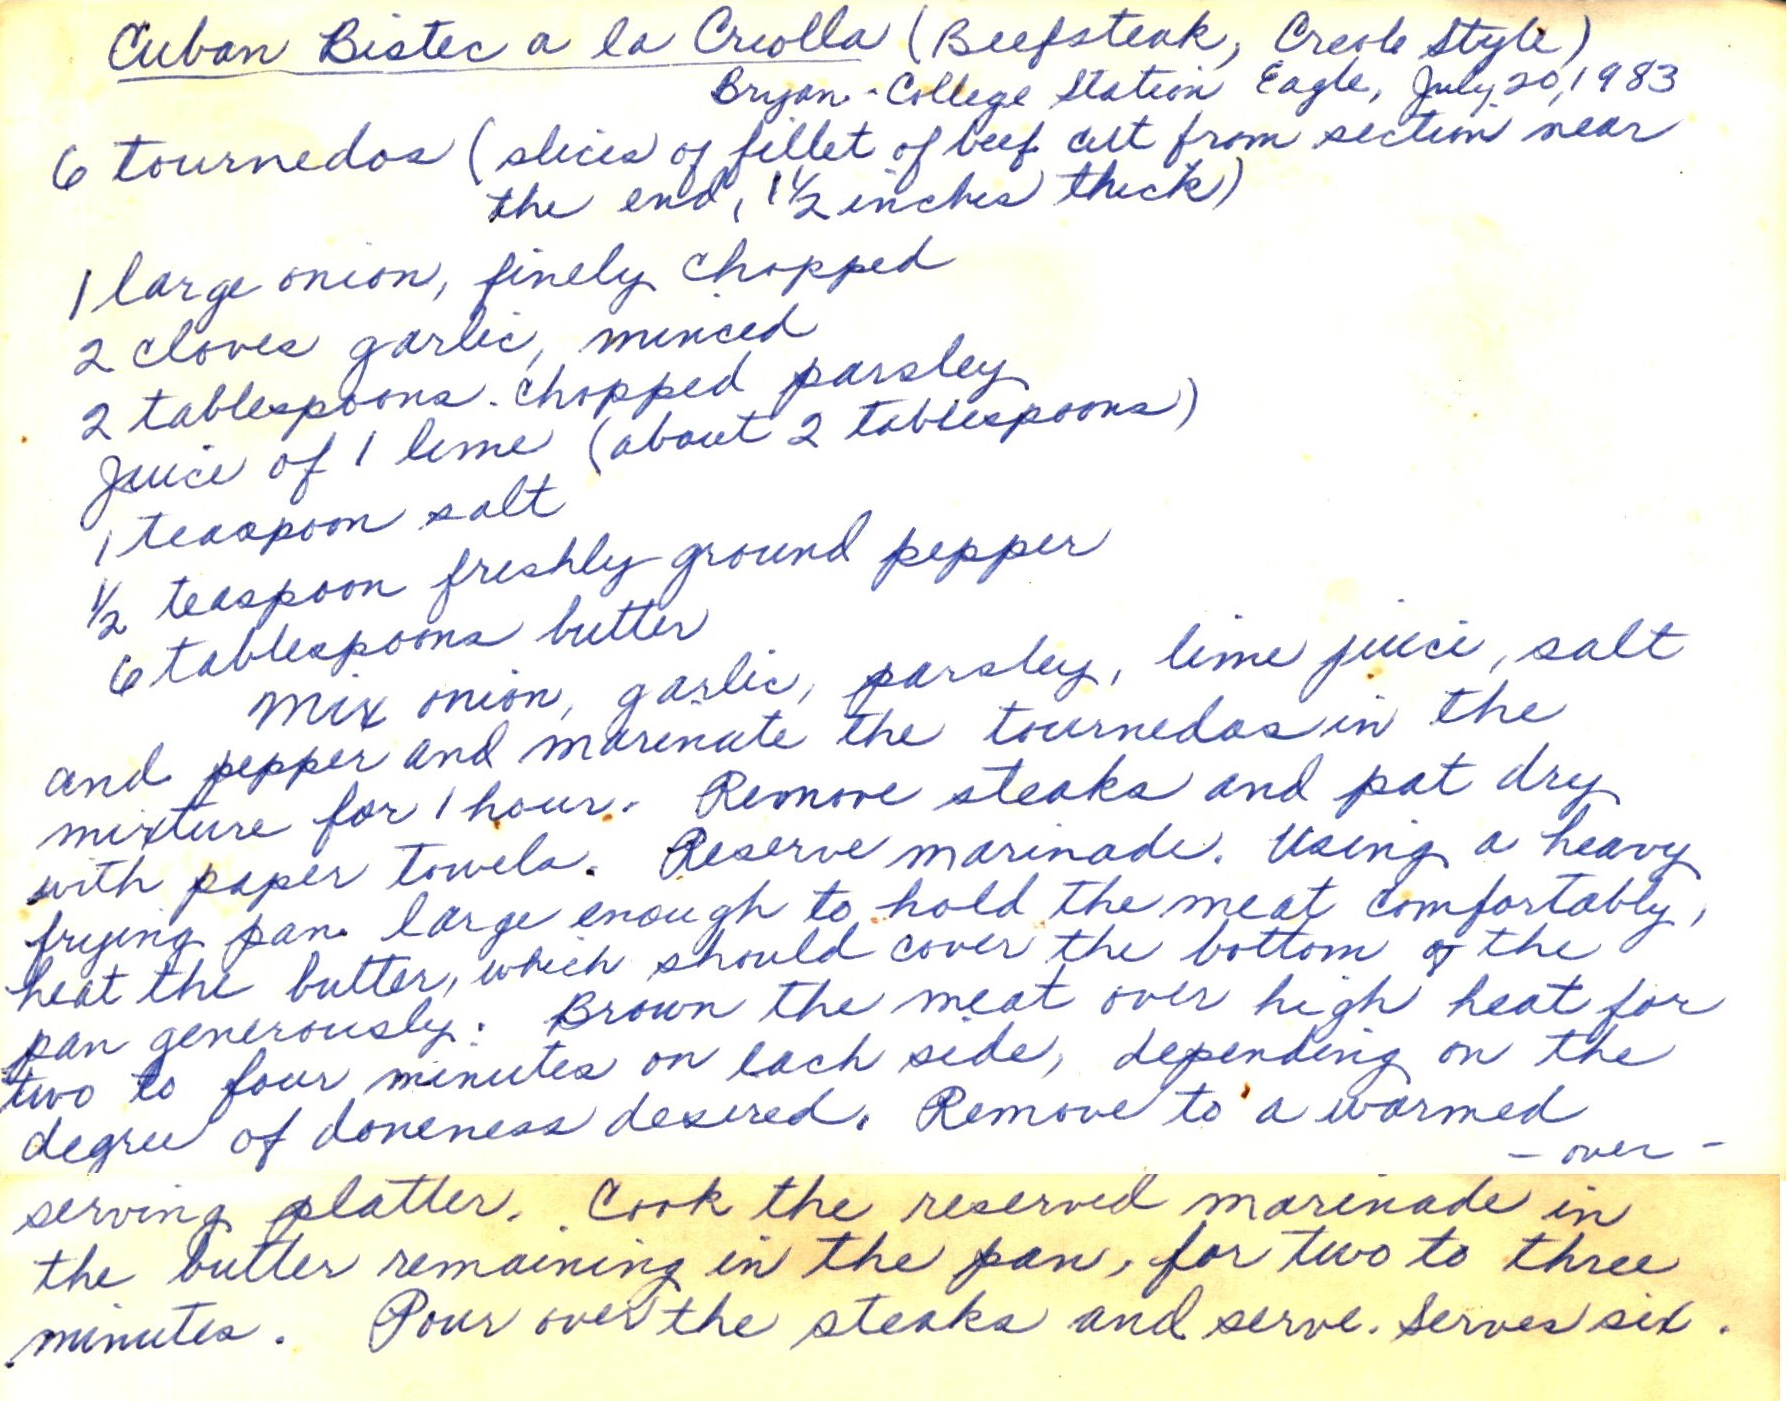 Cuban Bistec a la Criolla (Beefsteak, Creole Style)
Bryan-College Station Eagle, July 20, 1983
6 tournedos (slices of fillet of beef cut from section near
the end, 1 1/2 inches thick)
1 large onion, finely chopped
2 cloves garlic, minced
2 tablespoons chopped parsley
Juice of 1 lime (about 2 tablespoons)
1 teaspoon salt
1/2 teaspoon freshly ground pepper
6 tablespoons butter
Mix onion, garlic, parsley, lime juice, salt
and pepper and marinate the tournedos in the
mixture for 1 hour. Remove steaks and pat dry
with paper towels. Reserve marinade. Using a heavy
frying pan large enough to hold the meat comfortably,
heat the butter, which should cover the bottom of the
pan generously. Brown the meat over high heat for
two to four minutes on each side, depending on the
degree of doneness desired. Remove to a warmed
- over -
serving platter. Cook the reserved marinade in
the butter remaining in the pan, for two to three
minutes. Pour over the steaks and serve. Serves six.